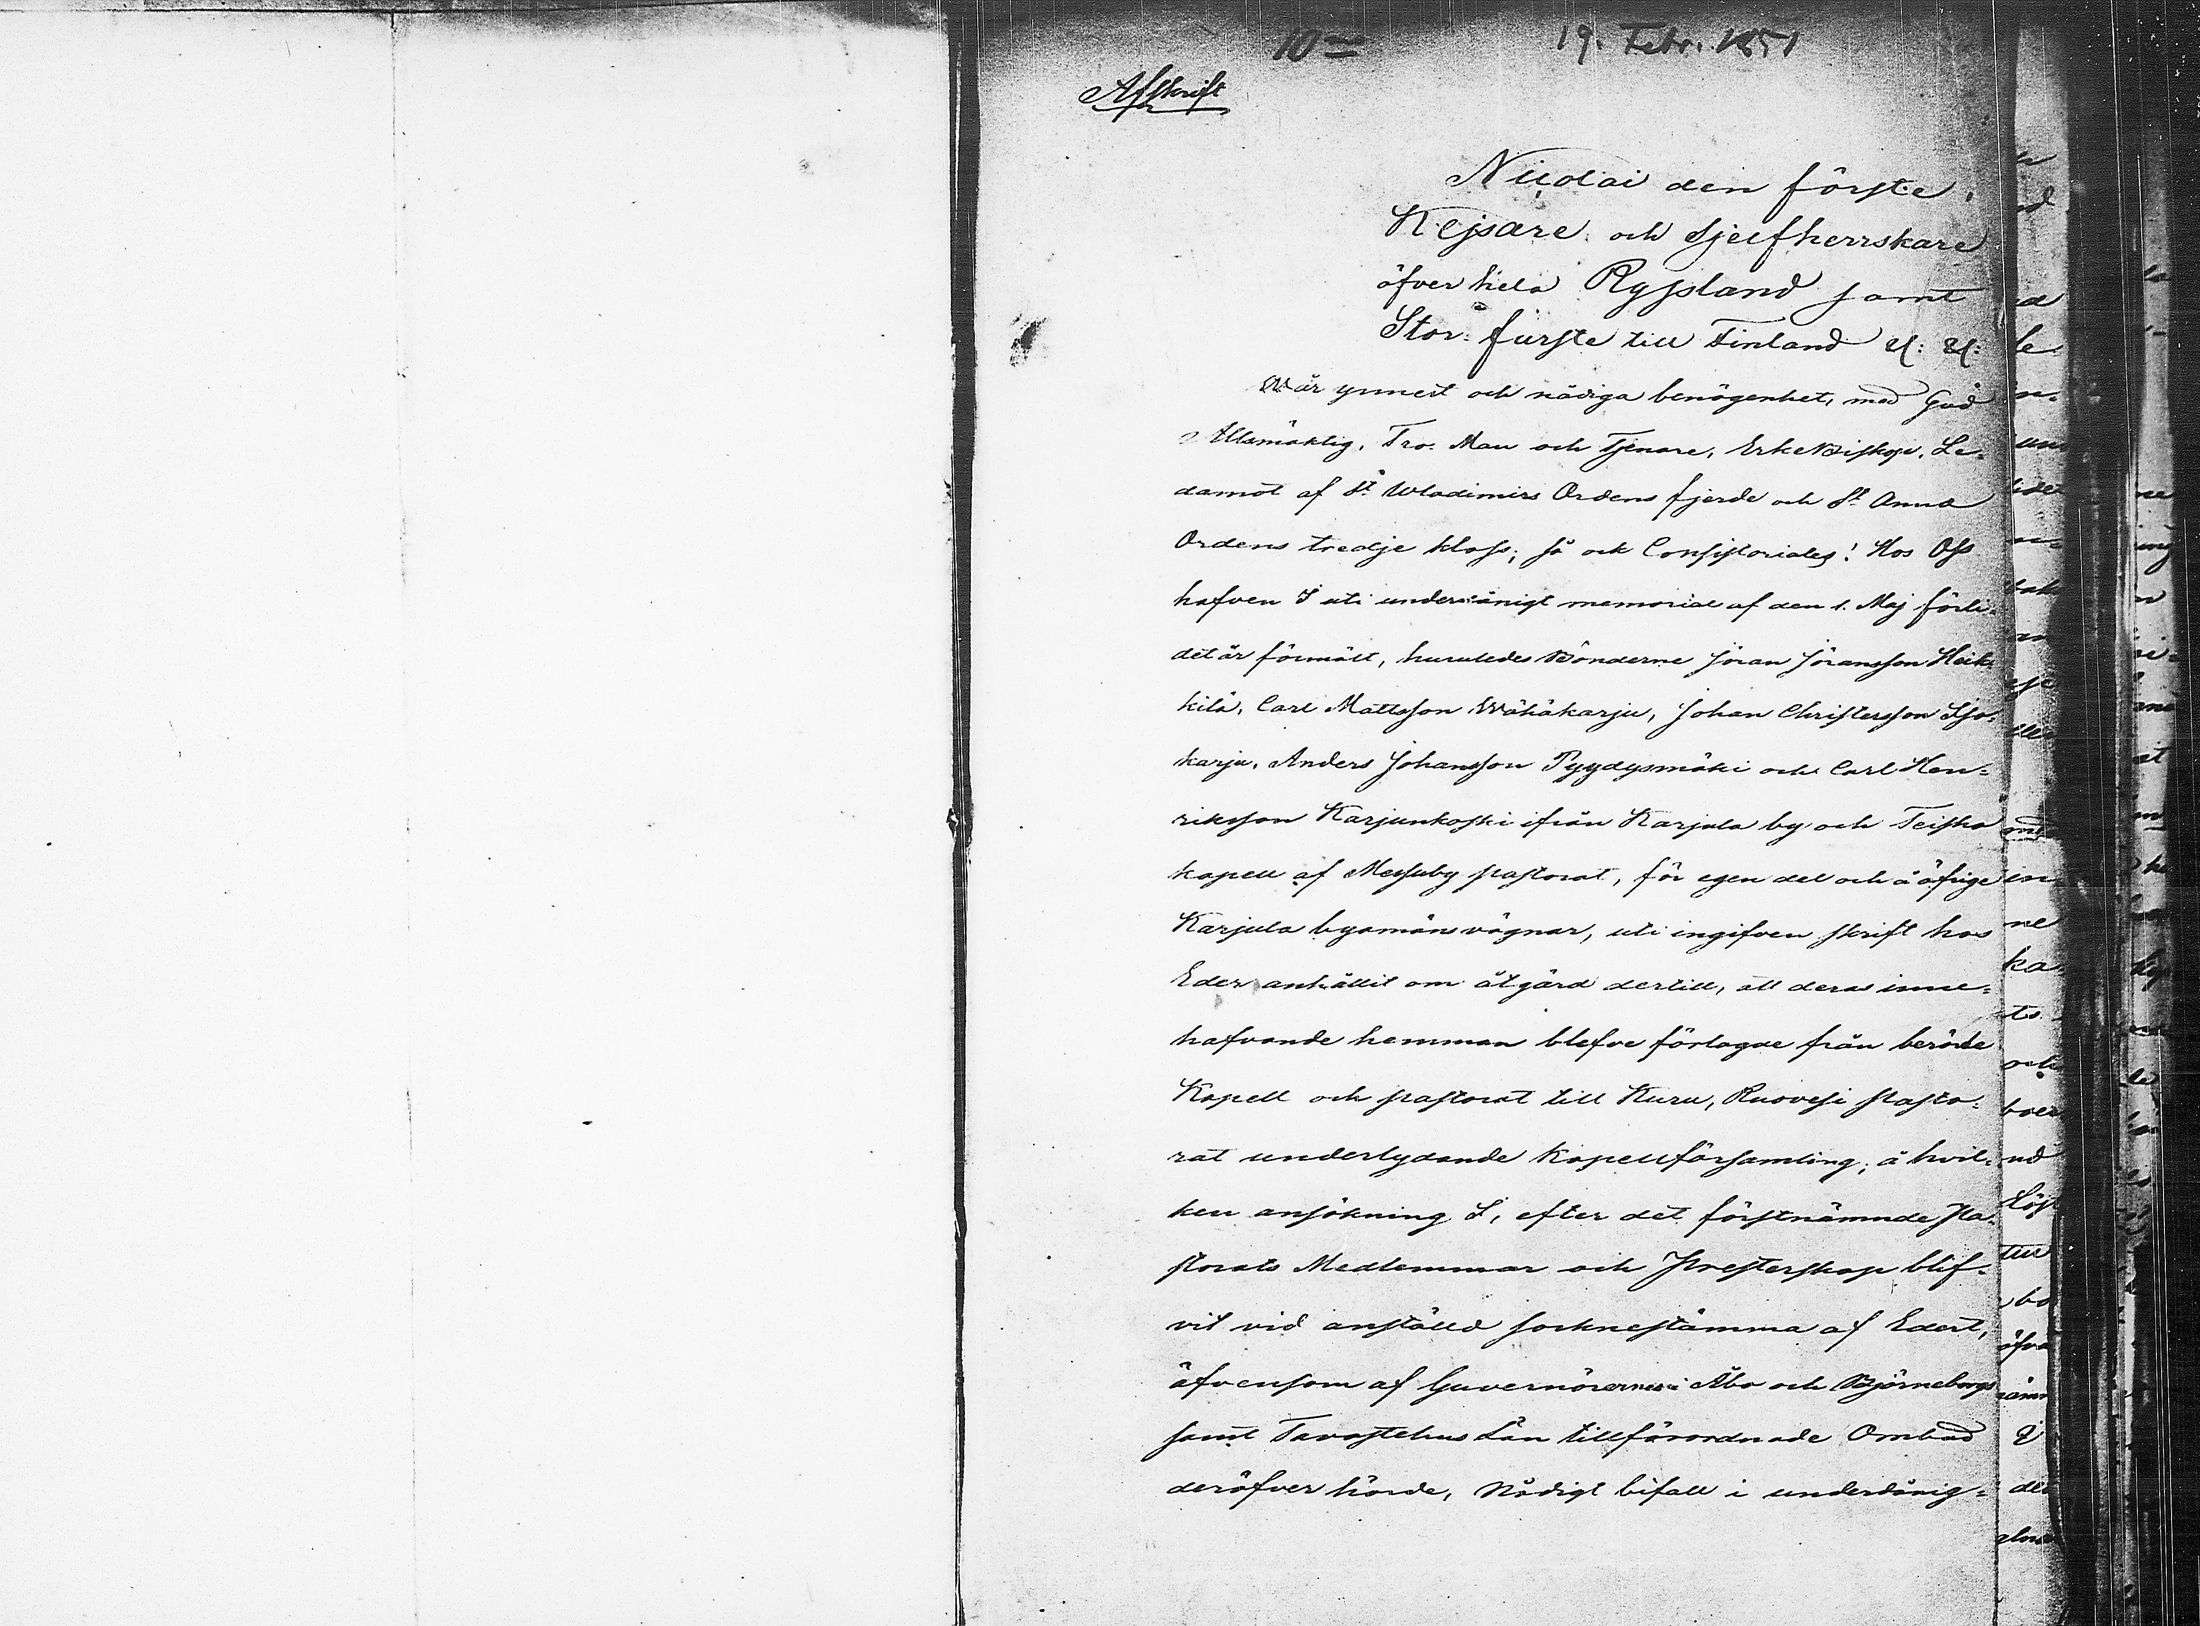 10
19. Febr. 1851
Afskrift
Nicolai den förste,
Kejsare och Sjelfherrskare
öfver hela Ryssland samt
Stor-furste till Finland &: &:
Wår ynnest och nådiga benägenhet, med Gud
Allsmäktig, Tro-Man och Tjenare, ErkeBiskop, Le-
damot af St Wladimirs Ordens fjerde och St Annæ
Ordens tredje klass, så ock Consistoriales! Hos Oss
hafven I uti underdånigt memorial af den 1. Maj förli-
det år förmält, huruledes Bönderne Jöran Jöransson Heik-
kilä, Carl Mattsson Wähäkarju, Johan Christersson Iso-
karju, Anders Johansson Pyydysmäki och Carl Hen-
riksson Karjunkoski ifrån Karjula by och Teisko
kapell af Messuby pastorat, för egen del och å öfrige
Karjula byamäns vägnar, uti ingifven skrift hos
Eder anhållit om åtgärd dertill, att deras inne-
hafvande hemman blefve förlagde från berörde
Kapell och pastorat till Kuru, Ruovesi pasto-
rat underlydande Kapellförsamling; å hvil-
ken ansökning I, efter det förstnämnde Pa-
storats Medlemmar och Presterskap blif-
vit vid anställd sockenstämma af Edert,
äfvensom af Guvernörernes i Åbo och Björneborgs
samt Tavastehus Län tillförordnade Ombud
deröfver hörde, Nådigt bifall i underdånig-